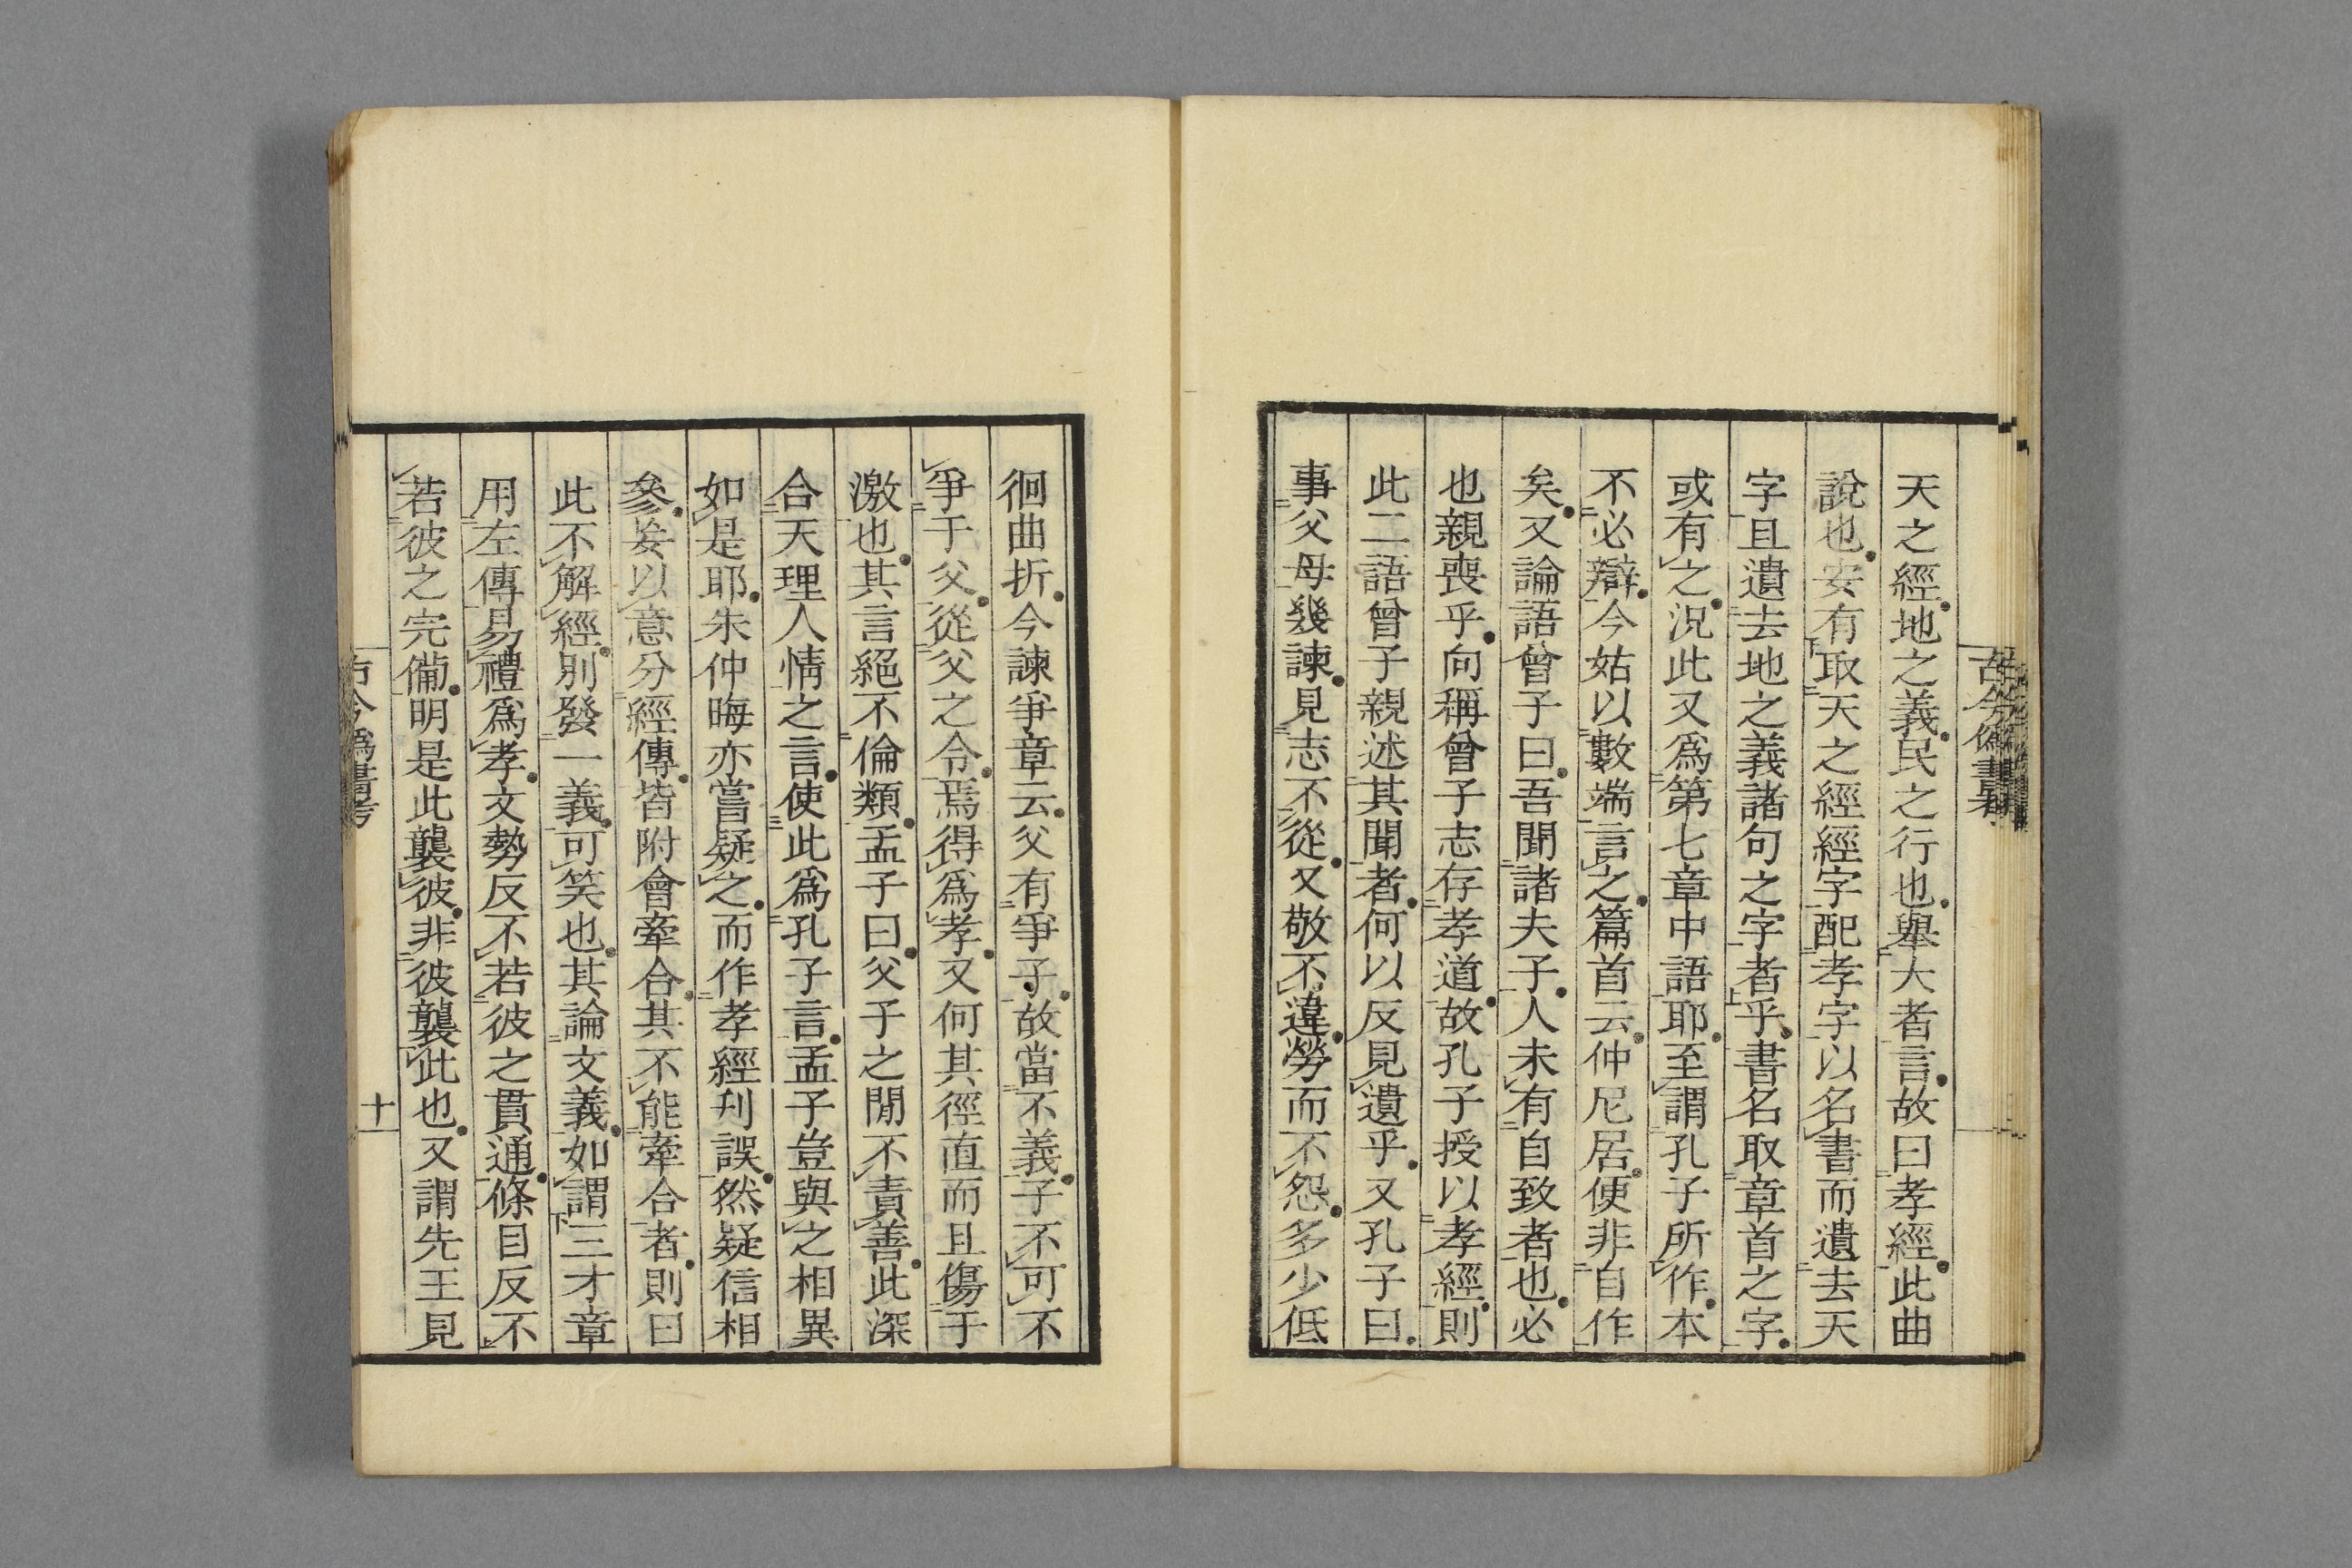 古今偽書考
天之經地之義民之行也舉大者言故曰孝經此曲
說也安有取天之經經字配孝字以名書而遺去天
字且遺去地之義諸句之字者乎書名取章首之字
或有之況此又爲第七章中語耶至謂孔子所作本
不必辯今姑以數端言之篇首云仲尼居便非自作
矣又論語曾子曰吾聞諸夫子人未有自致者也必
也親喪乎向稱曾子志存孝道故孔子授以孝經則
此二語曾子親述其聞者何以反見遺乎又孔子曰
事父母幾諫見志不從又敬不違勞而不怨多少低
徊曲折今諫爭章云父有爭子故當不義子不可不
爭于父從父之令焉得爲孝又何其徑直而且傷于
激也其言絕不倫類孟子曰父子之閒不責善此深
合天理人情之言使此爲孔子言孟子豈與之相異
如是耶朱仲晦亦嘗疑之而作孝經刋誤然疑信相
參妄以意分經傳皆附會牽合其不能牽合者則曰
此不解經別發一義可笑也其論文義如謂三才章
用左傳易禮爲孝文勢反不若彼之貫通條目反不
若彼之完備明是此襲彼非彼襲此也又謂先王見
古今偽書考
十